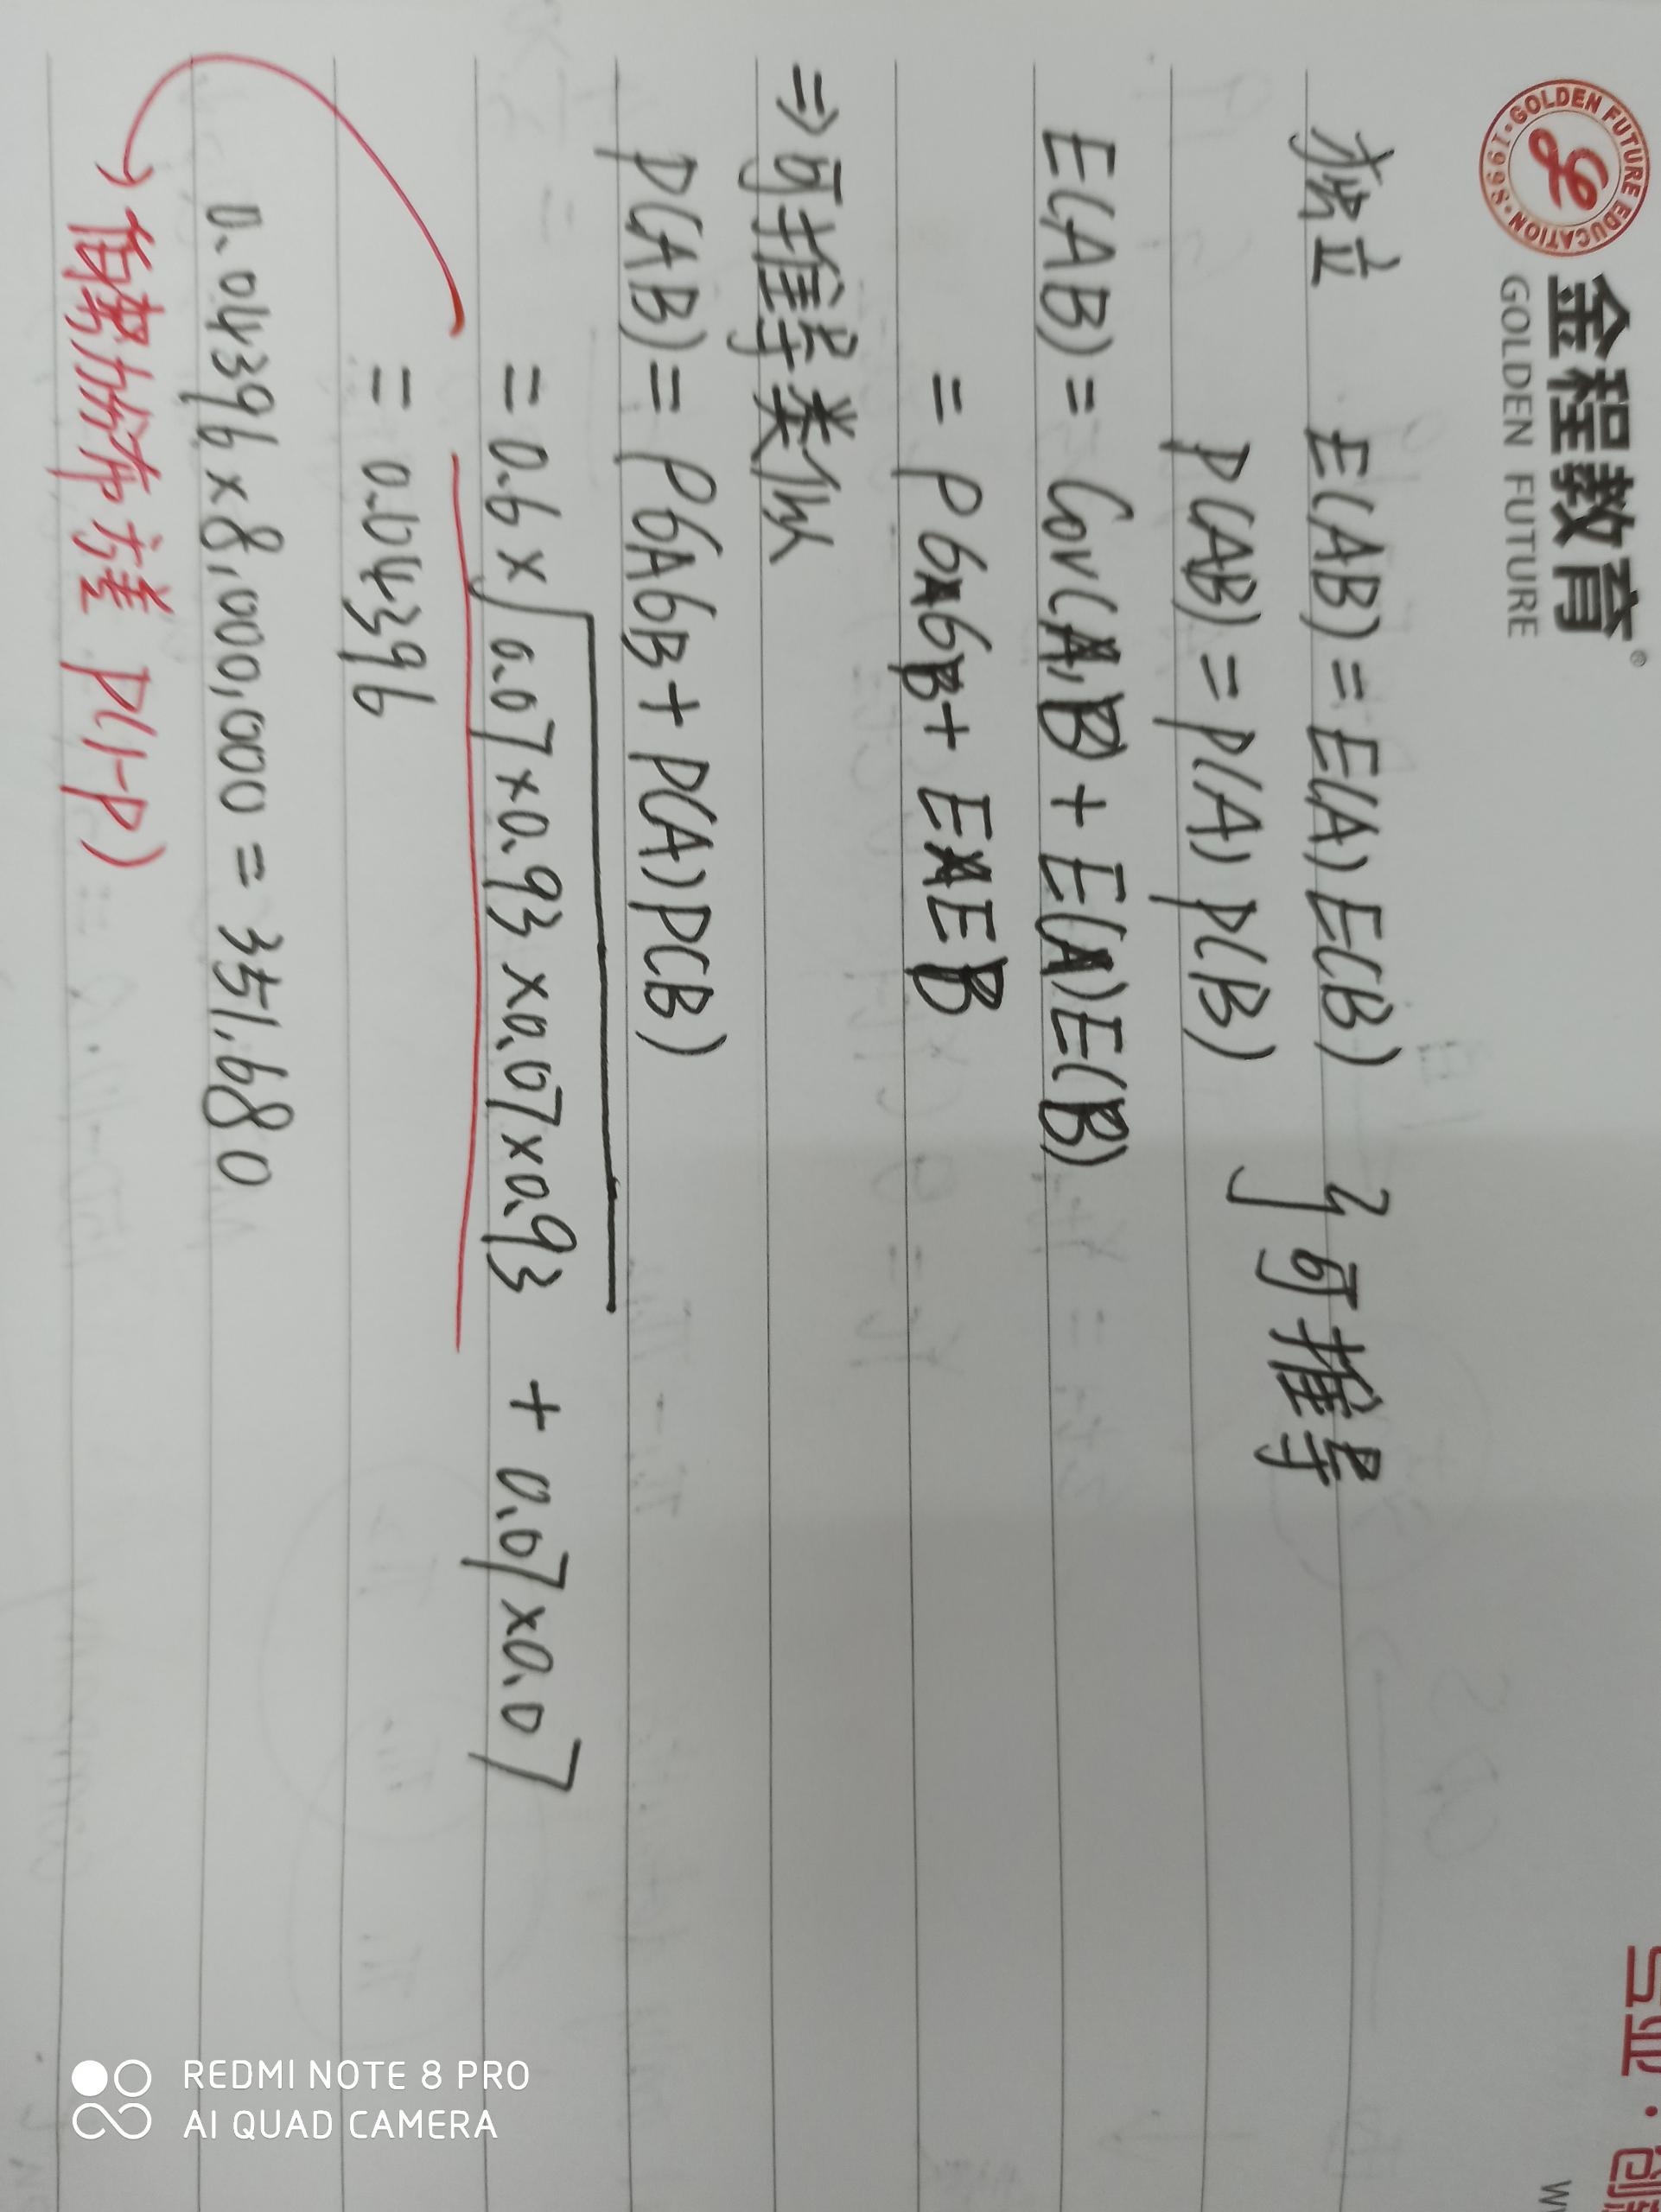 金程教育®
GOLDEN FUTURE
GOLDEN FUTURE EDUCATION · 1998 ·
独立 E(AB) = E(A) E(B)
P(AB) = P(A) P(B) } 可推导
E(AB) = Cov(A,B) + E(A)E(B)
= ρσAσB + EAEB
⇒ 可推导类似
P(AB) = ρσAσB + P(A)P(B)
= 0.6 × √0.07×0.93 ×0.07×0.93 + 0.07×0.07
= 0.04396
0.04396 × 8,000,000 = 351.680
→ 伯努力分布方差 P(1-P)
REDMI NOTE 8 PRO
AI QUAD CAMERA